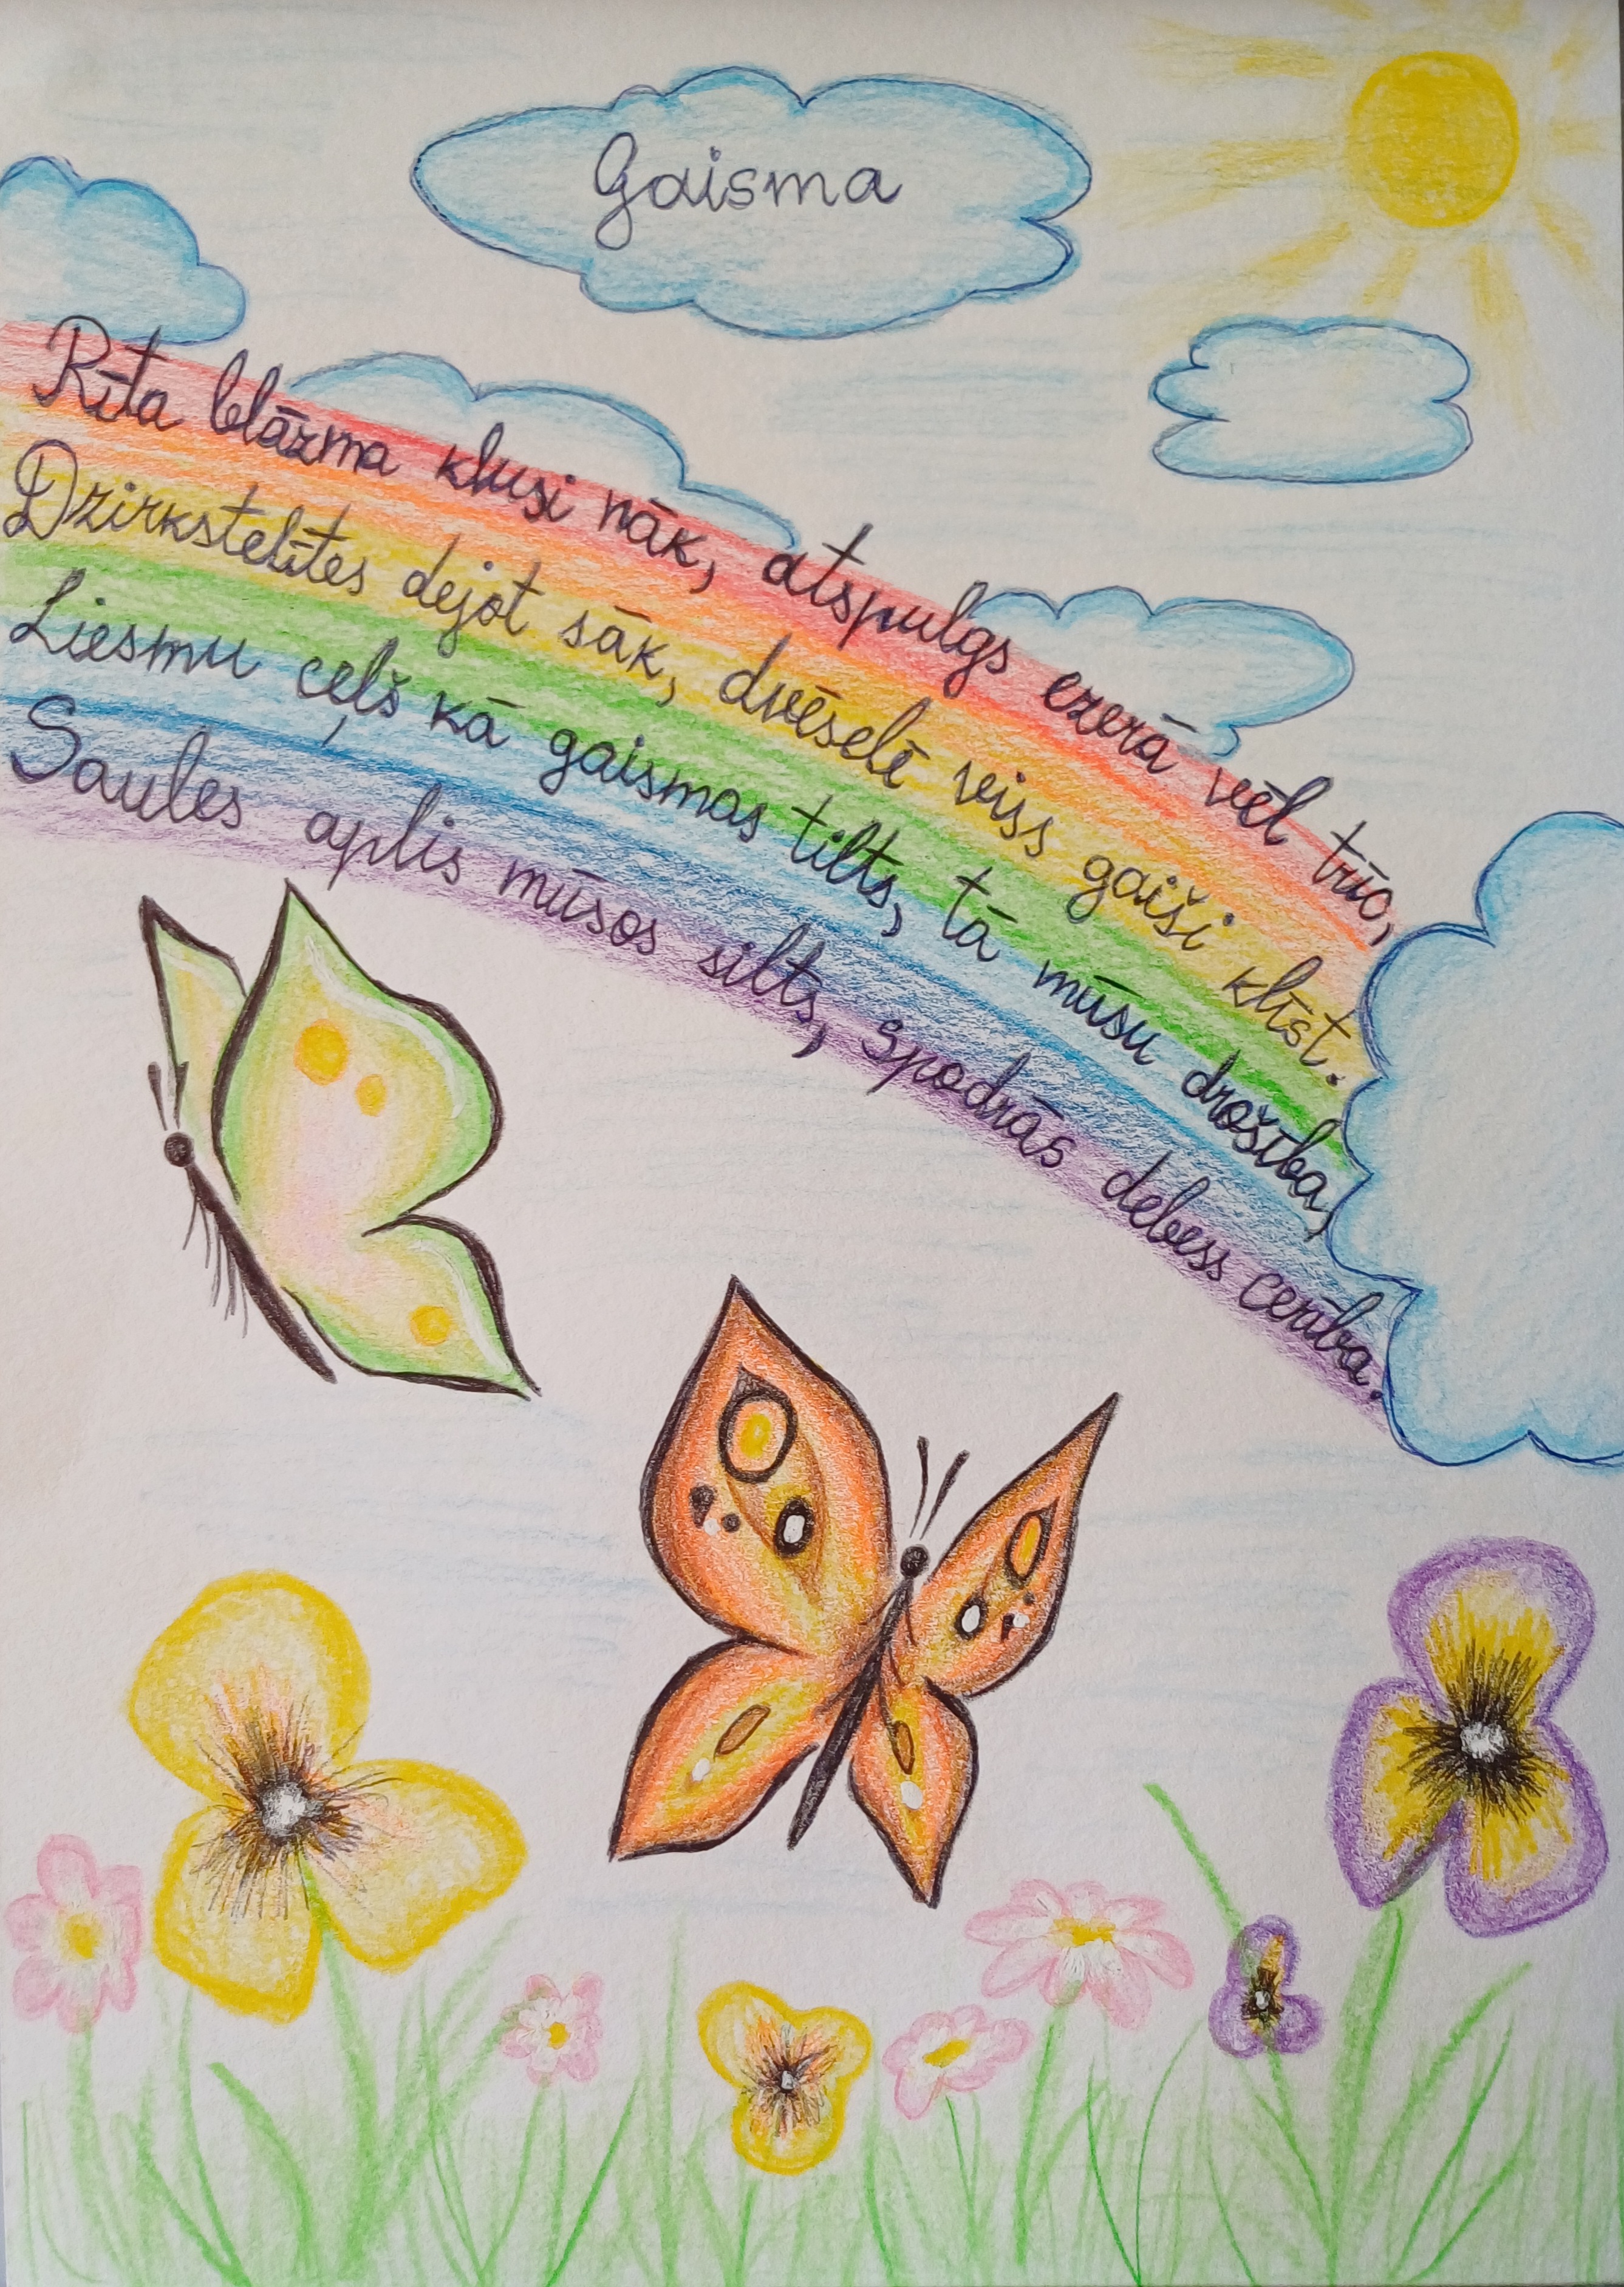 Gaisma
Rīta blāzma klusi nāk, atspulgs ezerā vēl trūc,
Dzirkstelītes dejot sāk, dvēselē viss gaiši klīst.
Liesmu ceļš kā gaismas tilts, tā mūsu drošība,
Saules aplis mūsos silts, spodrās debess cerība.